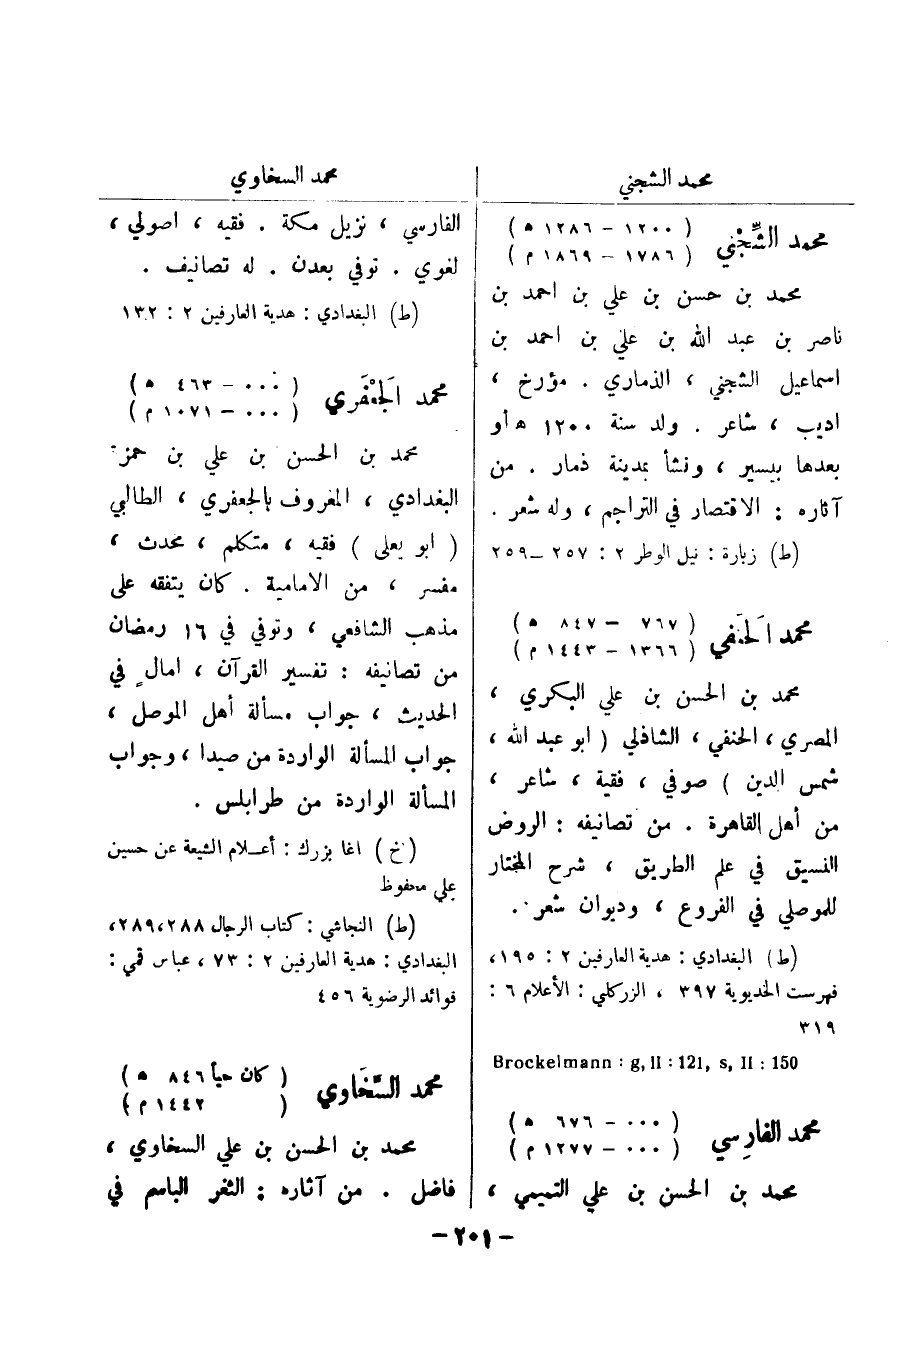 محمد الشجني
محمد الشِّجْني ( ١٢٠٠ – ١٢٨٦ ه )
( ١٧٨٦ – ١٨٦٩ م )
محمد بن حسن بن علي بن احمد بن
ناصر بن عبد الله بن علي بن احمد بن
اسماعيل الشجني ، الذماري . مؤرخ ،
اديب ، شاعر . ولد سنة ١٢٠٠ ه أو
بعدها بيسير ، ونشأ بمدينة ذمار . من
آثاره : الاقتصار في التراجم ، وله شعر .
(ط) زبارة : نيل الوطر ٢ : ٢٥٧ – ٢٥٩
محمد الحَنَفي ( ٧٦٧ – ٨٤٧ ه )
( ١٣٦٦ – ١٤٤٣ م )
محمد بن الحسن بن علي البكري ،
المصري ، الحنفي ، الشاذلي ( ابو عبد الله ،
شمس الدين ) صوفي ، فقية ، شاعر ،
من أهل القاهرة . من تصانيفه : الروض
النسيق في علم الطريق ، شرح المختار
للموصلي في الفروع ، وديوان شعر .
(ط) البغدادي : هدية العارفين ٢ : ١٩٥ ،
فهرست الخديوية ٣٩٧ ، الزركلي : الأعلام ٦ :
٣١٩
Brockelmann : g, II : 121, s, II : 150
محمد الفارسي ( ٠٠٠ – ٦٧٦ ه )
( ٠٠٠ – ١٢٧٧ م )
محمد بن الحسن بن علي التميمي ،
محمد السخاوي
الفارسي ، نزيل مكة . فقيه ، اصولي ،
لغوي . توفي بعدن . له تصانيف .
(ط) البغدادي : هدية العارفين ٢ : ١٣٢
محمد الجَعْفَري ( ٠٠٠ – ٤٦٣ ه )
( ٠٠٠ – ١٠٧١ م )
محمد بن الحسن بن علي بن حمزة
البغدادي ، المعروف بالجعفري ، الطالبي
( ابو يعلى ) فقيه ، متكلم ، محدث ،
مفسر ، من الامامية . كان يتفقه على
مذهب الشافعي ، وتوفي في ١٦ رمضان
من تصانيفه : تفسير القرآن ، امالٍ في
الحديث ، جواب مسألة أهل الموصل ،
جواب المسألة الواردة من صيدا ، وجواب
المسألة الواردة من طرابلس .
(خ) اغا بزرك : أعلام الشيعة عن حسين
علي محفوظ
(ط) النجاشي : كتاب الرجال ٢٨٨ ، ٢٨٩ ،
البغدادي : هدية العارفين ٢ : ٧٣ ، عباس قمي :
فوائد الرضوية ٤٥٦
محمد السَّخَاوي ( كان حياً ٨٤٦ ه )
( ١٤٤٢ م )
محمد بن الحسن بن علي السخاوي ،
فاضل . من آثاره : الثغر الباسم في
– ٢٠١ –